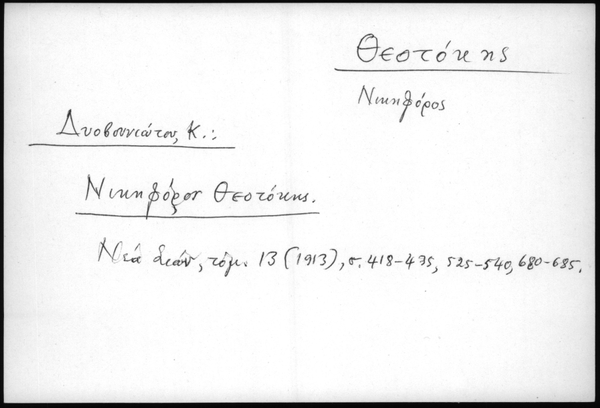 Θεοτόκης
Νικηφόρος
Δυοβουνιώτου, Κ.:
Νικηφόρος Θεοτόκης.
Νέα Σιών, τόμ. 13 (1913), σ. 418-435, 525-540, 680-685.